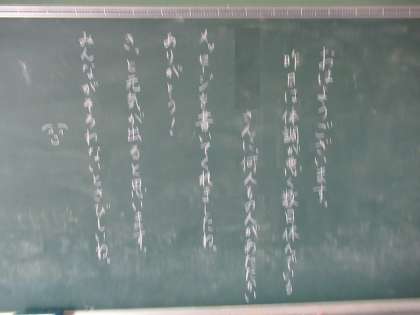 おはようございます。
昨日は体調が悪く数日休んでいる
さんに何人もの人があたたかい
メッセージを書いてくれましたね。
ありがとう！
きっと元気が出ると思います。
みんながそろわないとさびしいね。